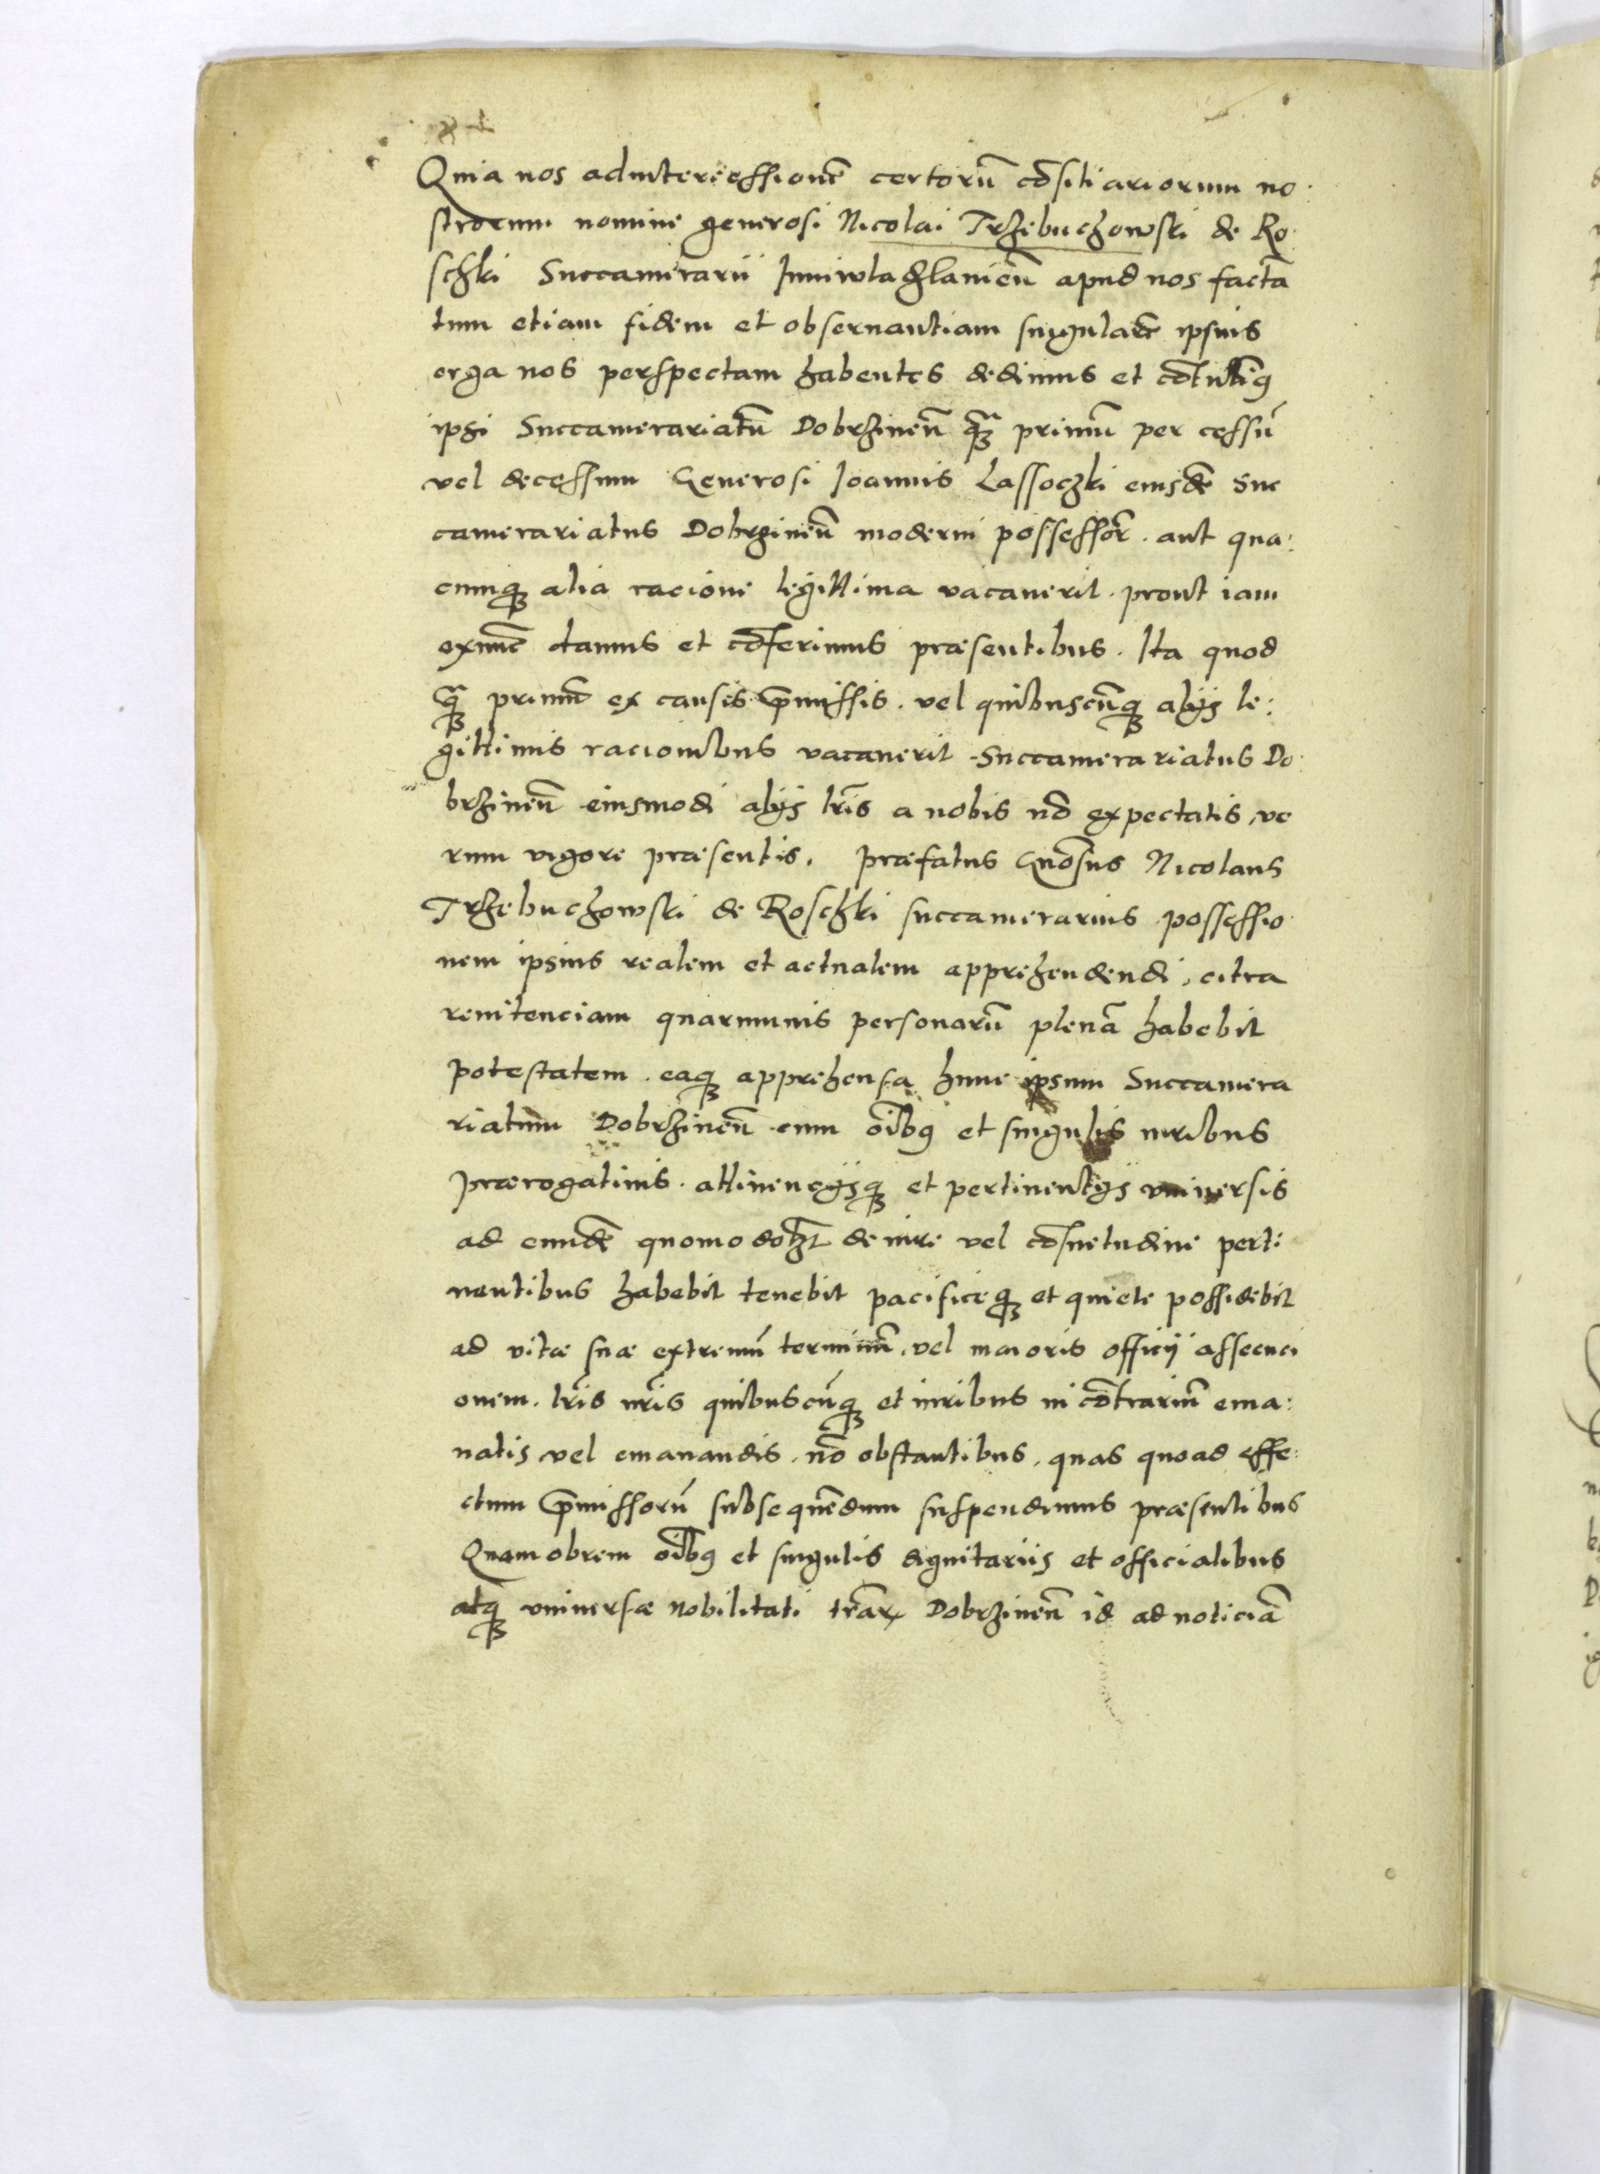 Quia nos ad intercessionē certorū cōsiliariorum no.
strorum nomine generosi Nicolai Trzebuchowski de Ro.
schki Succamerarii Iuniwladzlauieñ apud nos factā
tum etiam fidem et obseruantiam singularē ipsius
erga nos perspectam habentes dedimus et cōtulim9
ipsi Succamerariatū Dobrzineñ q̄ꝫ primū per cessū
vel decessum Generosi Ioannis Lassoczki eiusdē Suc
camerariatus Dobrzineñ moderni possessor̄. aut qua:
cumqꝫ alia racione legittima vacauerit. prout iam
exnūc damus et cōferimus præsentibus. Ita quod
q̄ꝫ primū ex causis p̄missis. vel quibuscūqꝫ alijs le:
gittimis racionibus vacauerit Succamerariatus Do.
brzineñ eiusmodi alijs lr̄is a nobis nō expectatis, ve
rum vigore præsentis. Præfatus Gnōsus Nicolaus
Trzebuchowski de Roschki succamerarius possessio.
nem ipsius realem et actualem apprehendendi, citra
renitenciam quarumuis personarū plenā habebit
potestatem. eaqꝫ apprehensa hunc ipsum Succamera
riatum Dobrzineñ cum oībq et singulis iuribus
Prærogatiuis. attinencijsqꝫ et pertinentijs vniuersis
ad eundē quomodolꝫt de iure vel cōsuetudine perti
nentibus habebit tenebit pacificeqꝫ et quiete possidebit
ad vitæ suæ extremū terminū. vel maioris officij assecuci
onem. lr̄is nr̄is quibuscūqꝫ et iuribus in cōtrariū ema:
natis vel emanandis. nō obstantibus. quas quoad effe:
ctum p̄missorū subsequēdum suspendimus præsentibus
Quamobrem oībq et singulis dignitariis et officialibus
atqꝫ vniuersæ Nobilitati tr̄arꝝ Dobrzineñ id ad noticiā